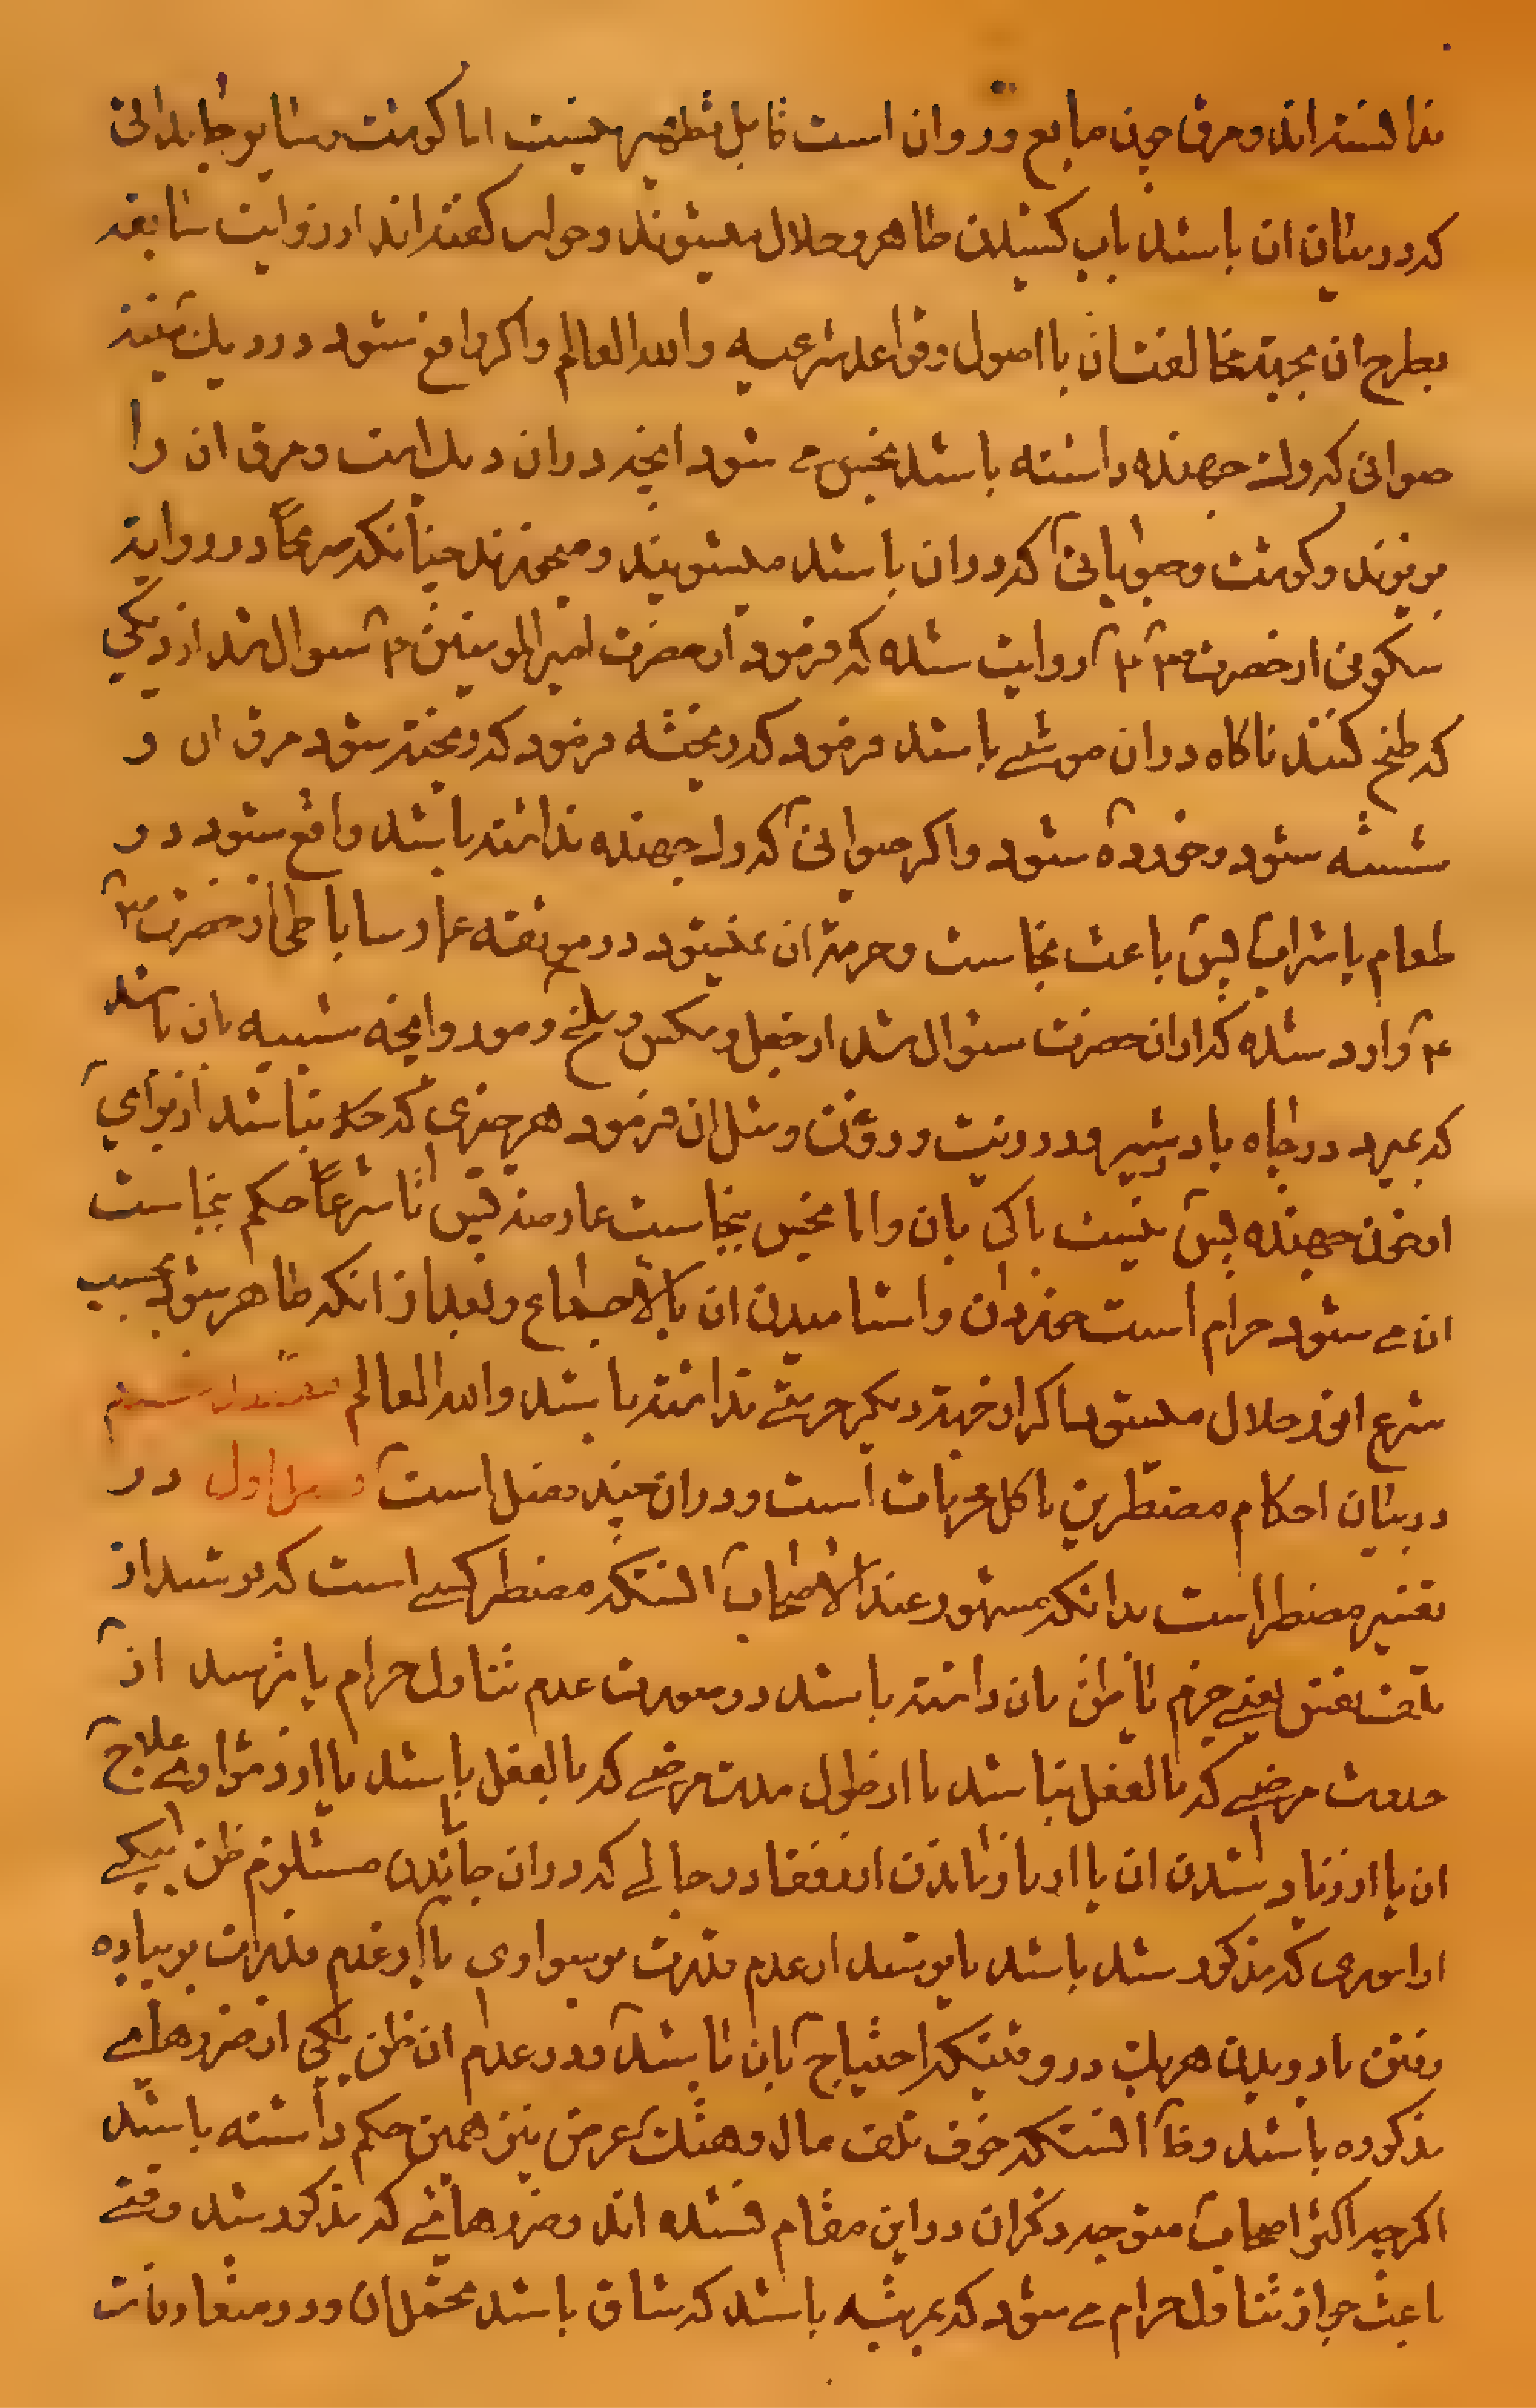 ندانسته‌اند و مرق چون مایع و روان است قابل تطهیر نیست اما گوشت و سایر جامداتی
که در میان آن باشد بآب کشیدن طاهر و حلال میشوند و جواب گفته‌اند از روایت سابقه
بطرح آن بجهة مخالفتشان با اصول و قواعد شرعیه والله العالم و اگر واقع شود در دیک میته
حیوانی که دم جهنده داشته باشد نجس می شود آنچه در آن دیک است و مرق آن را
بریزند و گوشت و حبوباتی که در آن باشد میشویند و میخورند چنانکه صریحاً در روایة
سکونی از حضرت ص ع روایت شده که فرمود از حضرت امیرالمومنین ع سوال شد از دیکی
که طبخ کنند ناکاه در آن موشی باشد فرمود که ریخته فرمود که ریخته شود مرق آن و
شسته شود و خورده شود و اگر حیوانی که دم جهنده نداشته باشد واقع شود در
طعام یا شراب پس باعث نجاست و حرمة آن نمیشود در موثقه عمار ساباطی از حضرت ص
ع وارد شده که از آن حضرت سئوال شد از جعل و مکس و ملخ و مور و آنچه شبیه بآن باشد
که بمیرد در چاه یا در شیر و در زیت و روغن و مثل آن فرمود هر چیزی که نباشد از برای
او خون جهنده پس نیست باکی بآن و اما نجس بنجاست عارضه پس تا شرعاً حکم بنجاست
آن می شود حرام است خوردن و آشامیدن آن بالاجماع و بعد از آنکه طاهر شود بحسب
شرع انور حلال میشود اگر از جهة دیکر حرمتی نداشته باشد والله العالم
در بیان احکام مضطرین باکل محرمات است و در آن چند فصل است فصل اول در
تفسیر مضطر است بدانکه مشهور عند الاصحاب آنستکه مضطر کسی است که بترسد از
تلف نفس یعنی جزم یا ظن بآن داشته باشد در صورت عدم تناول حرام یا بترسد از
حدوث مرضی که بالفعل نباشد یا از طول مدت مرضی که بالفعل باشد یا از دشواری علاج
آن یا از زیاد شدن آن یا از باز ماندن از رفقا در حالی که در آن جا ماندن مستلزم ظن بیکی
از اموری که مذکور شد باشد یا بترسد از عدم قدرت بر سواری یا از عدم قدرت بر پیاده
رفتن یا دویدن هر یک در وقتیکه احتیاج بآن باشد و در عدم آن ظن بیکی از ضررهای
مذکوره باشد و ظ آنستکه خوف تلف مال و هتک عرض نیز همین حکم داشته باشد
اکرچه اکثر اصحاب متوجه ذکر آن در این مقام نشده‌اند و ضررهائی که مذکور شد وقتی
باعث جواز تناول حرام می شود که بمرتبه باشد که شاق باشد تحمل آن و در متعارفات